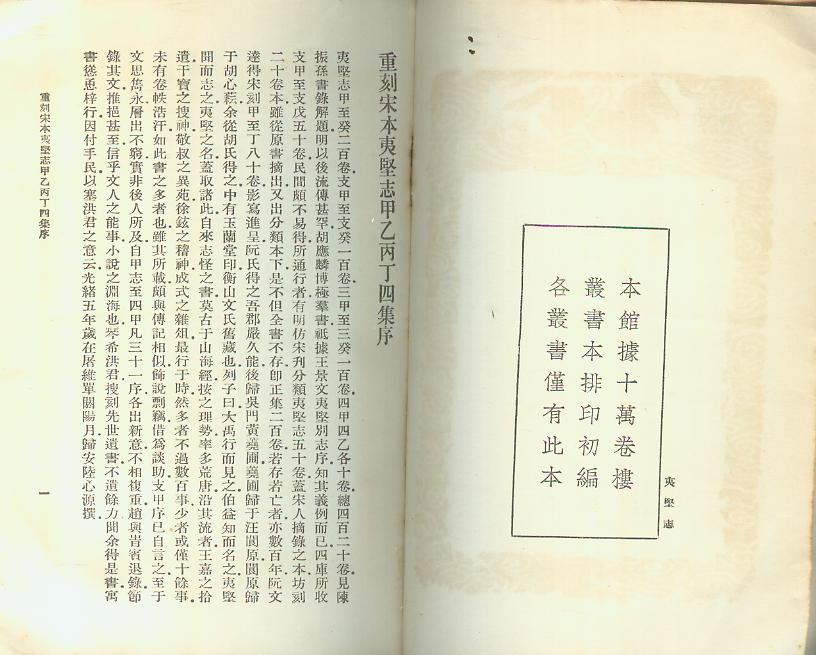 夷堅志
本館據十萬卷樓
叢書本排印初編
各叢書僅有此本
重刻宋本夷堅志甲乙丙丁四集序
夷堅志甲至癸二百卷支甲至支癸一百卷三甲至三癸一百卷四甲四乙各十卷總四百二十卷見陳
振孫書錄解題明以後流傳甚罕胡應麟博極羣書祗據王景文夷堅別志序知其義例而已四庫所收
支甲至支戊五十卷民間頗不易得所通行者有明仿宋刋分類夷堅志五十卷蓋宋人摘錄之本坊刻
二十卷本雖從原書摘出又出分類本下是不但全書不存卽正集二百卷若存若亡者亦數百年阮文
達得宋刻甲至丁八十卷影寫進呈阮氏得之吾郡嚴久能後歸吳門黃蕘圃蕘圃歸于汪閬原閬原歸
于胡心蘇余從胡氏得之中有玉蘭堂印衡山文氏舊藏也列子曰大禹行而見之伯益知而名之夷堅
聞而志之夷堅之名蓋取諸此自來志怪之書莫古于山海經按之理勢率多荒唐沿其流者王嘉之拾
遺干寶之搜神敬叔之異苑徐鉉之稽神成式之雜俎最行于時然多者不過數百事少者或僅十餘事
未有卷帙浩汗如此書之多者也雖其所載頗與傳記相似飾說剽竊借爲談助支甲序已自言之至于
文思雋永層出不窮實非後人所及自甲志至四甲凡三十一序各出新意不相復重趙與峕賓退錄節
錄其文推挹甚至信乎文人之能事小說之淵海也琴希洪君搜刻先世遺書不遺餘力聞余得是書寓
書慫恿梓行因付手民以塞洪君之意云光緒五年歲在屠維單閼陽月歸安陸心源撰
重刻宋本夷堅志甲乙丙丁四集序
一